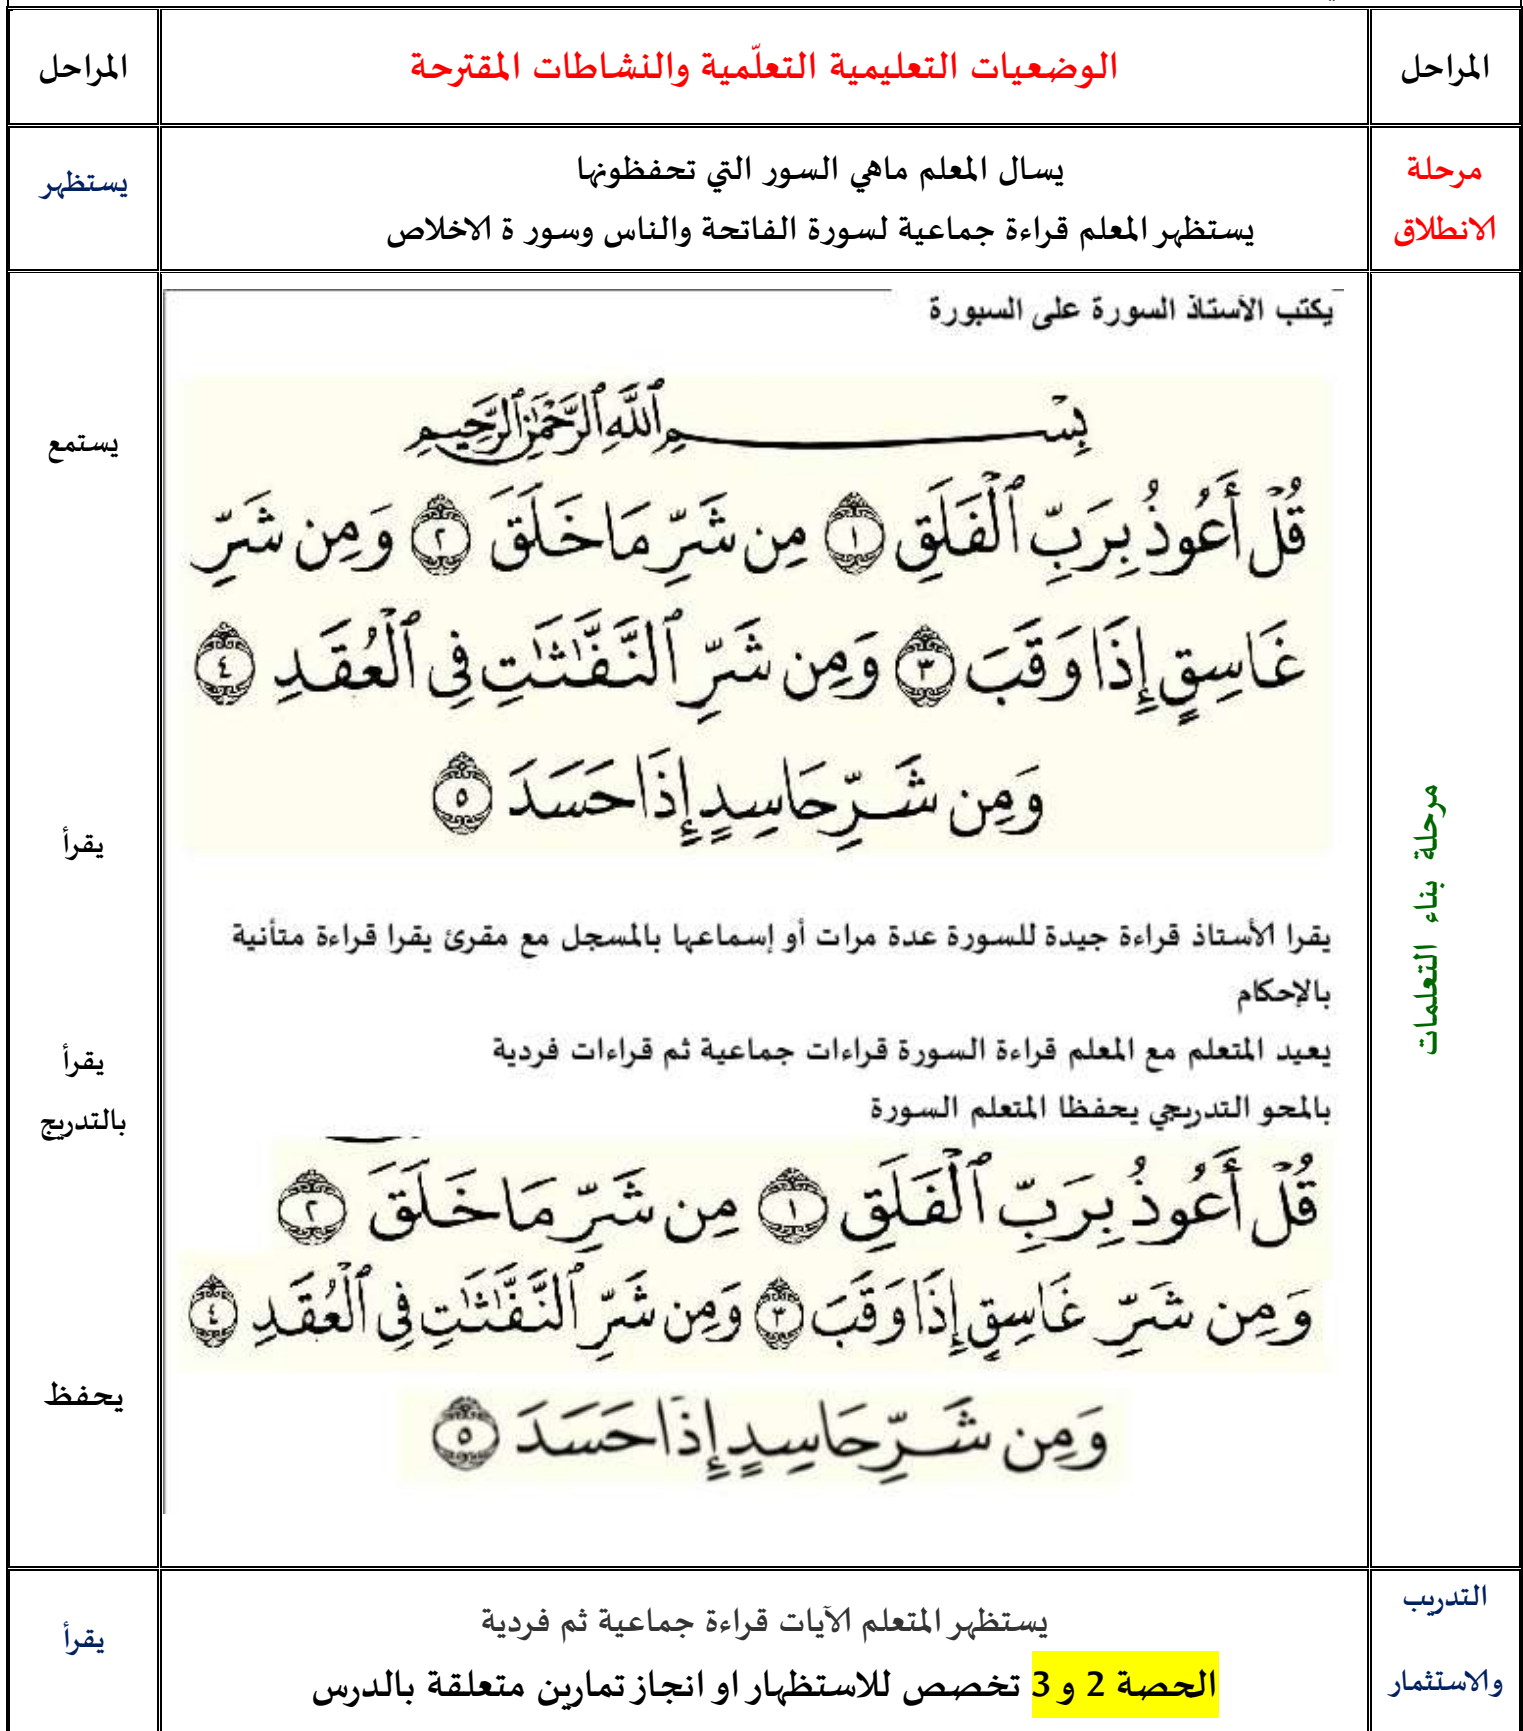 المراحل
الوضعيات التعليمية التعلّمية والنشاطات المقترحة
المراحل
مرحلة
الانطلاق
يسال المعلم ماهي السور التي تحفظونها
يستظهر المعلم قراءة جماعية لسورة الفاتحة والناس وسور ة الاخلاص
يستظهر
مرحلة بناء التعلمات
يكتب الأستاذ السورة على السبورة
بِسْمِ ٱللَّهِ ٱلرَّحْمَٰنِ ٱلرَّحِيمِ
قُلْ أَعُوذُ بِرَبِّ ٱلْفَلَقِ ١ مِن شَرِّ مَا خَلَقَ ٢ وَمِن شَرِّ
غَاسِقٍ إِذَا وَقَبَ ٣ وَمِن شَرِّ ٱلنَّفَّٰثَٰتِ فِي ٱلْعُقَدِ ٤
وَمِن شَرِّ حَاسِدٍ إِذَا حَسَدَ ٥
يقرا الأستاذ قراءة جيدة للسورة عدة مرات أو إسماعها بالمسجل مع مقرئ يقرا قراءة متأنية
بالإحكام
يعيد المتعلم مع المعلم قراءة السورة قراءات جماعية ثم قراءات فردية
بالمحو التدريجي يحفظا المتعلم السورة
قُلْ أَعُوذُ بِرَبِّ ٱلْفَلَقِ ١ مِن شَرِّ مَا خَلَقَ ٢
وَمِن شَرِّ غَاسِقٍ إِذَا وَقَبَ ٣ وَمِن شَرِّ ٱلنَّفَّٰثَٰتِ فِي ٱلْعُقَدِ ٤
وَمِن شَرِّ حَاسِدٍ إِذَا حَسَدَ ٥
يستمع
يقرأ
يقرأ
بالتدريج
يحفظ
التدريب
والاستثمار
يستظهر المتعلم الآيات قراءة جماعية ثم فردية
الحصة 2 و 3 تخصص للاستظهار او انجاز تمارين متعلقة بالدرس
يقرأ